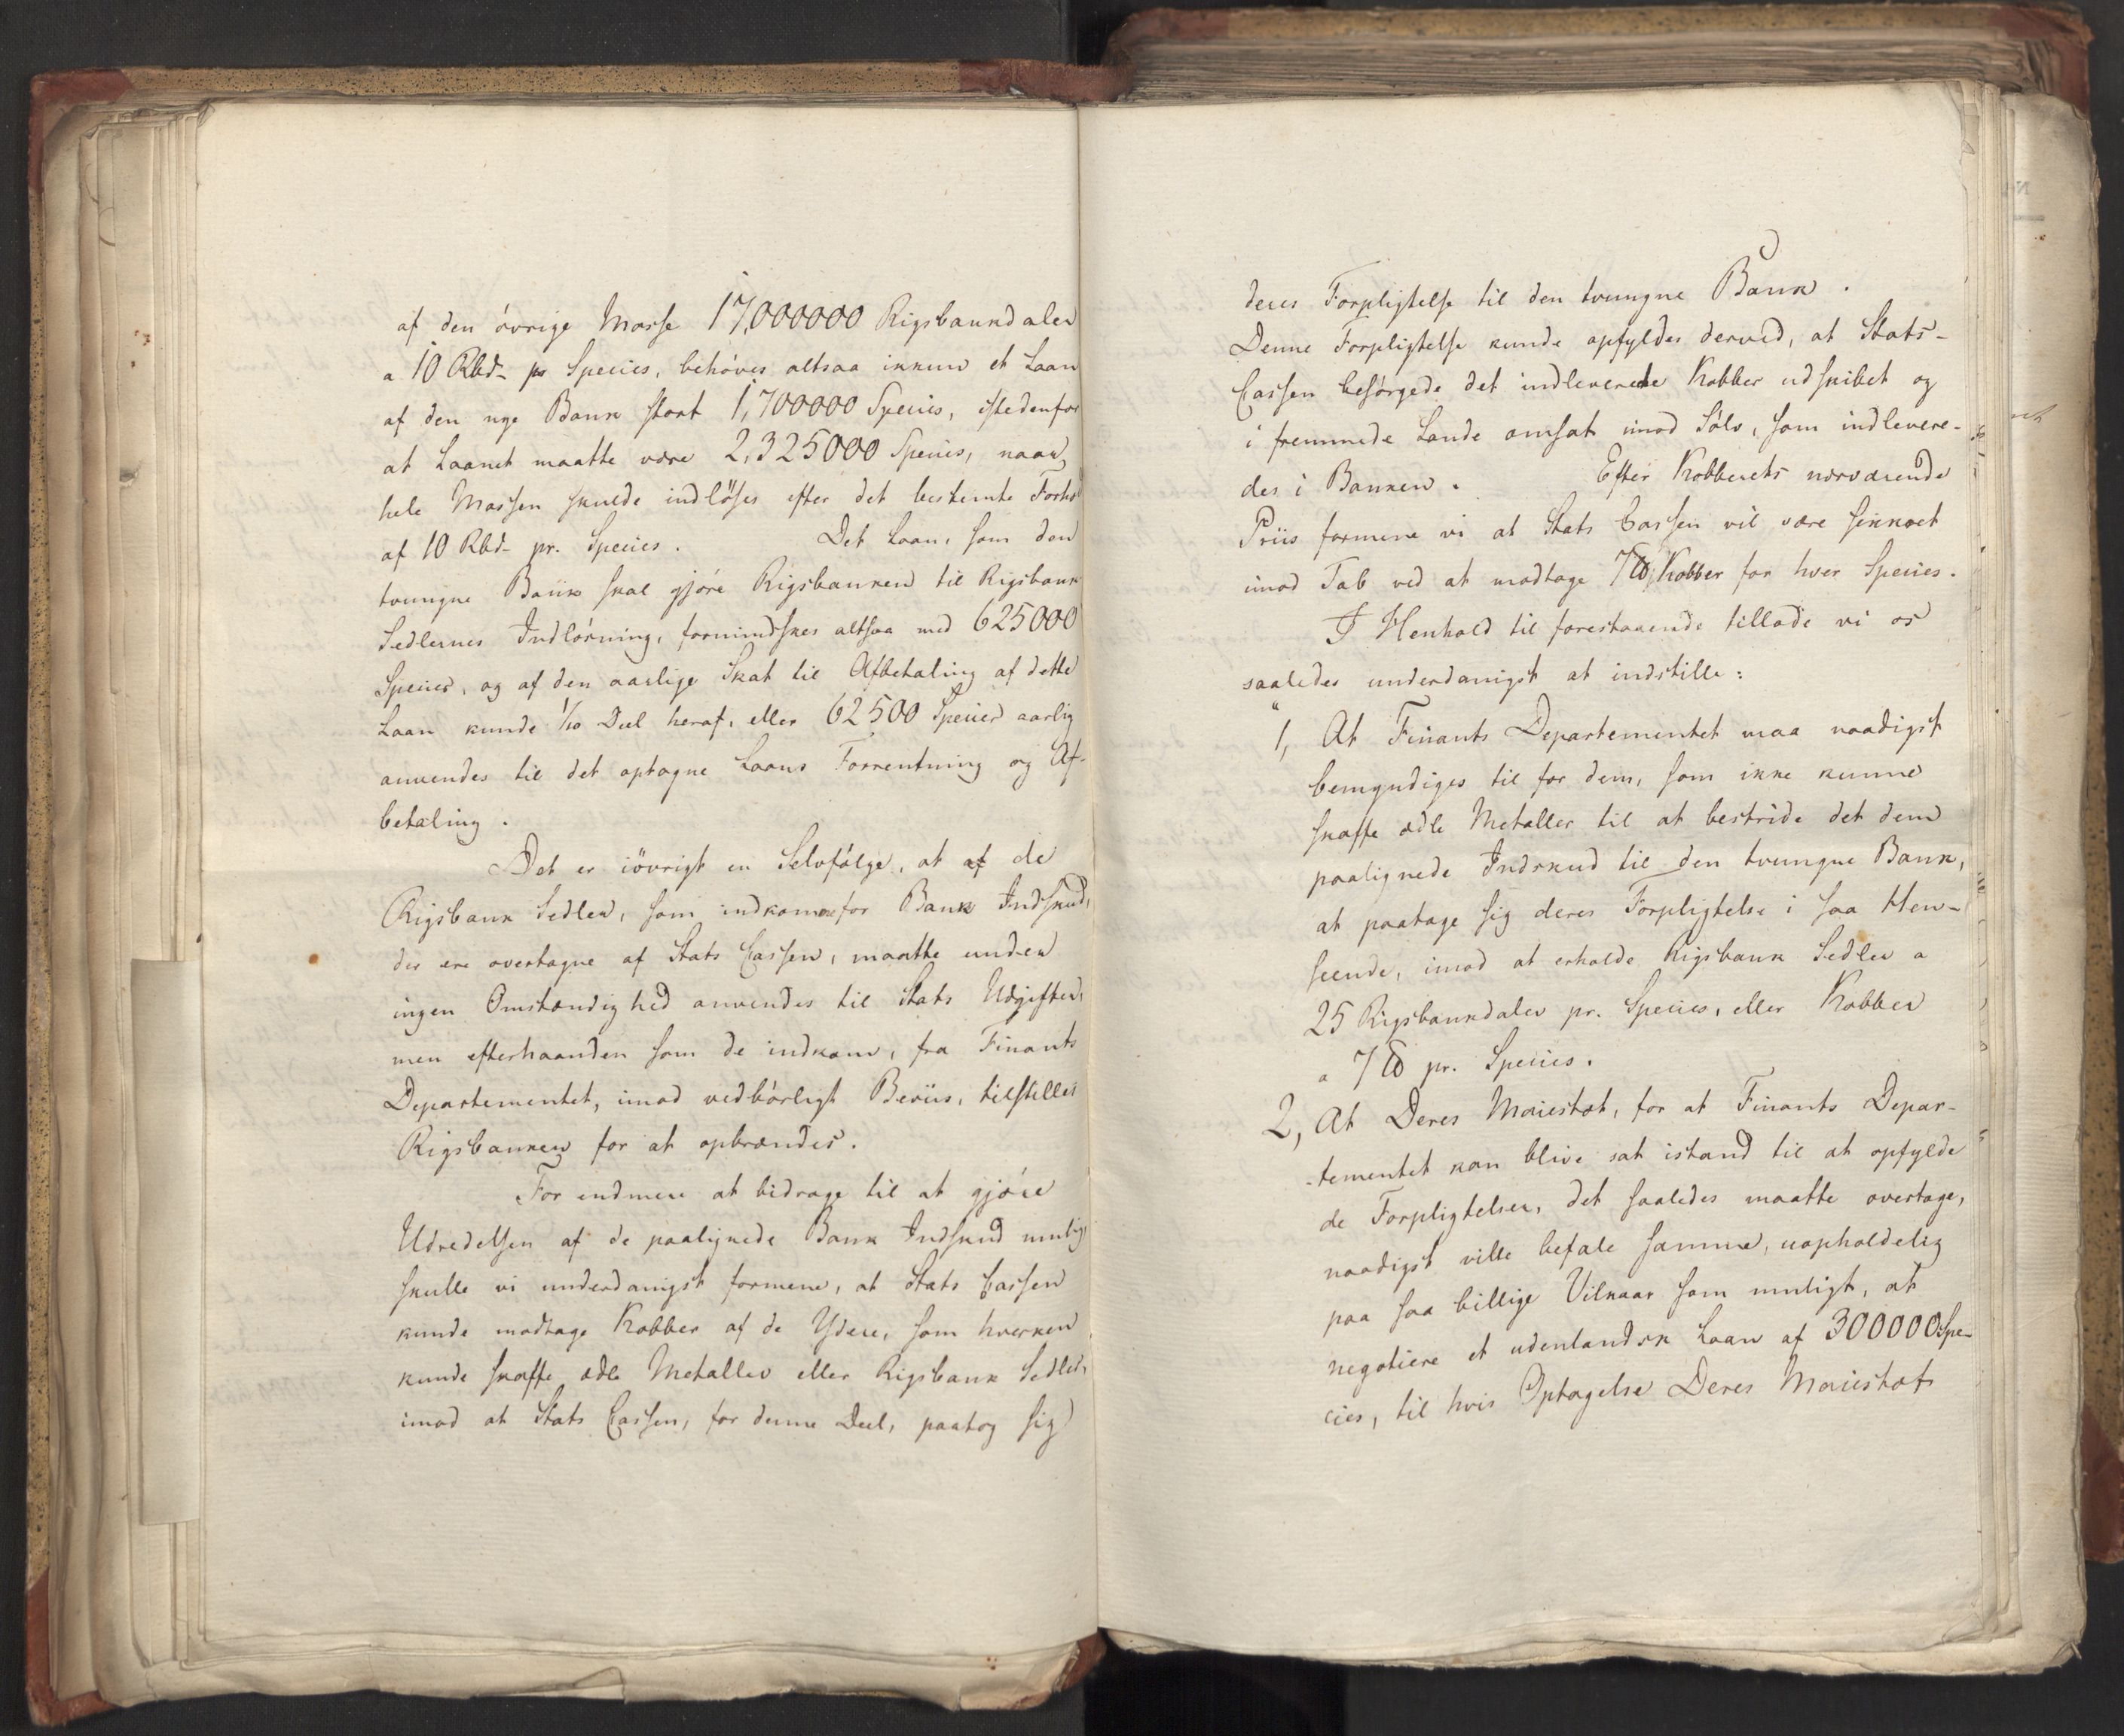 af den övrige Masse 17,000000 Rigsbankdaler
a 10 Rbd- pr Species, behöves altsaa ikkun et Laan
af den nye Bank stort 1,700000 Species, istedenfor
at Laanet maatte være 2,325000 Species, naar
hele Massen skulde indlöses efter det bestemte Forhold
af 10 Rbd- pr. Species. Det Laan, som den
tvungne Bank skal gjöre Rigsbanken til Rigsbank
Sedlernes Indlösning, formindskes altsaa med 625000
Species, og af den aarlige Skat til Afbetaling af dette
Laan kunde 1/10 Deel heraf, eller 62500 Species aarlig
anvendes til det optagne Laans Forrentning og Af-
betaling.
Det er iövrigt en Selvfölge, at af de
Rigsbank Sedler, som indkomme for Bank Indskud,
der ere overtagne af Stats Cassen, maatte under
ingen Omstændighed anvendes til Stats Udgifter,
men efterhaanden som de indkom, fra Finants
Departementet, imod vedbörligt Beviis, tilstilles
Rigsbanken for at opbrændes.
For endmere at bidrage til at gjöre
Udredelsen af de paalignede Bank Indskud mulig,
skulle vi underdanigst formene, at Stats Cassen
kunde modtage Kobber af de Ydere, som hverken
kunde skaffe ædle Metaller eller Rigsbank Sedler,
imod at Stats Cassen, for denne Deel, paatog sig
deres Forpligtelse til den tvungne Bank.
Denne Forpligtelse kunde opfyldes derved, at Stats-
Cassen besörgede det indleverede Kobber udskibet og
i fremmede Lande omsat imod Sölv, som indlevere-
des i Banken. Efter Kobberets nærværende
Priis formene vi at Stats Cassen vil være sikkret
imod Tab ved at modtage 7 ℔ Kobber for hver Species.
I Henhold til forestaaende tillade vi os
saaledes underdanigst at indstille:
"1, At Finants Departementet maa naadigst
bemyndiges til for dem, som ikke kunne
skaffe ædle Metaller til at bestride det dem
paalignede Indskud til den tvungne Bank,
at paatage sig deres Forpligtelse i saa Hen-
seende, imod at erholde Rigsbank Sedler a
25 Rigsbankdaler pr. Species, eller Kobber
a 7 ℔ pr. Species.
2, At Deres Maiestæt, for at Finants Depar-
-tementet kan blive sat istand til at opfylde
de Forpligtelser, det saaledes maatte overtage,
naadigst ville befale samme, uopholdelig
paa saa billige Vilkaar som muligt, at
negotiere et udenlandsk Laan af 300000 Spe-
cies, til hvis Optagelse Deres Maiestæts